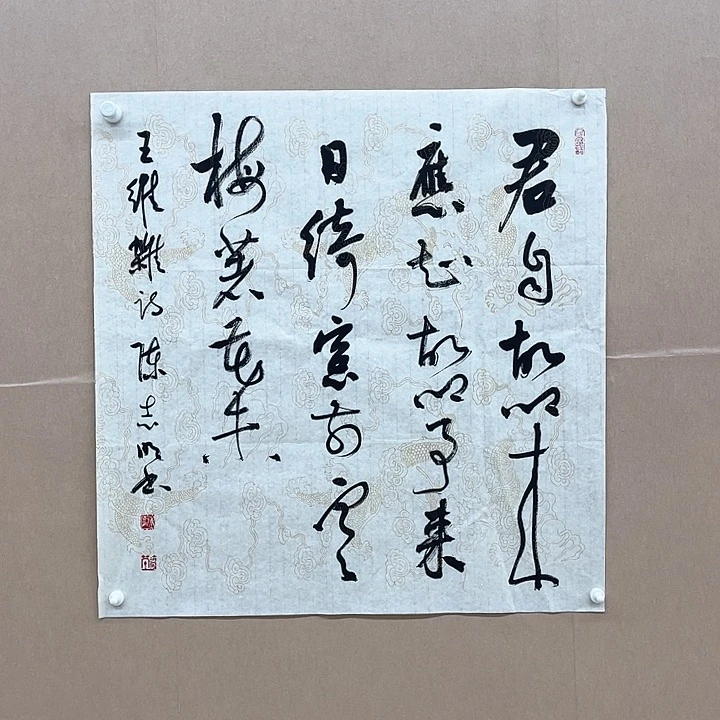 君自故鄉来
應知故鄉事来
日綺窗前寒
梅著花未
王維雜詩 陳志明書